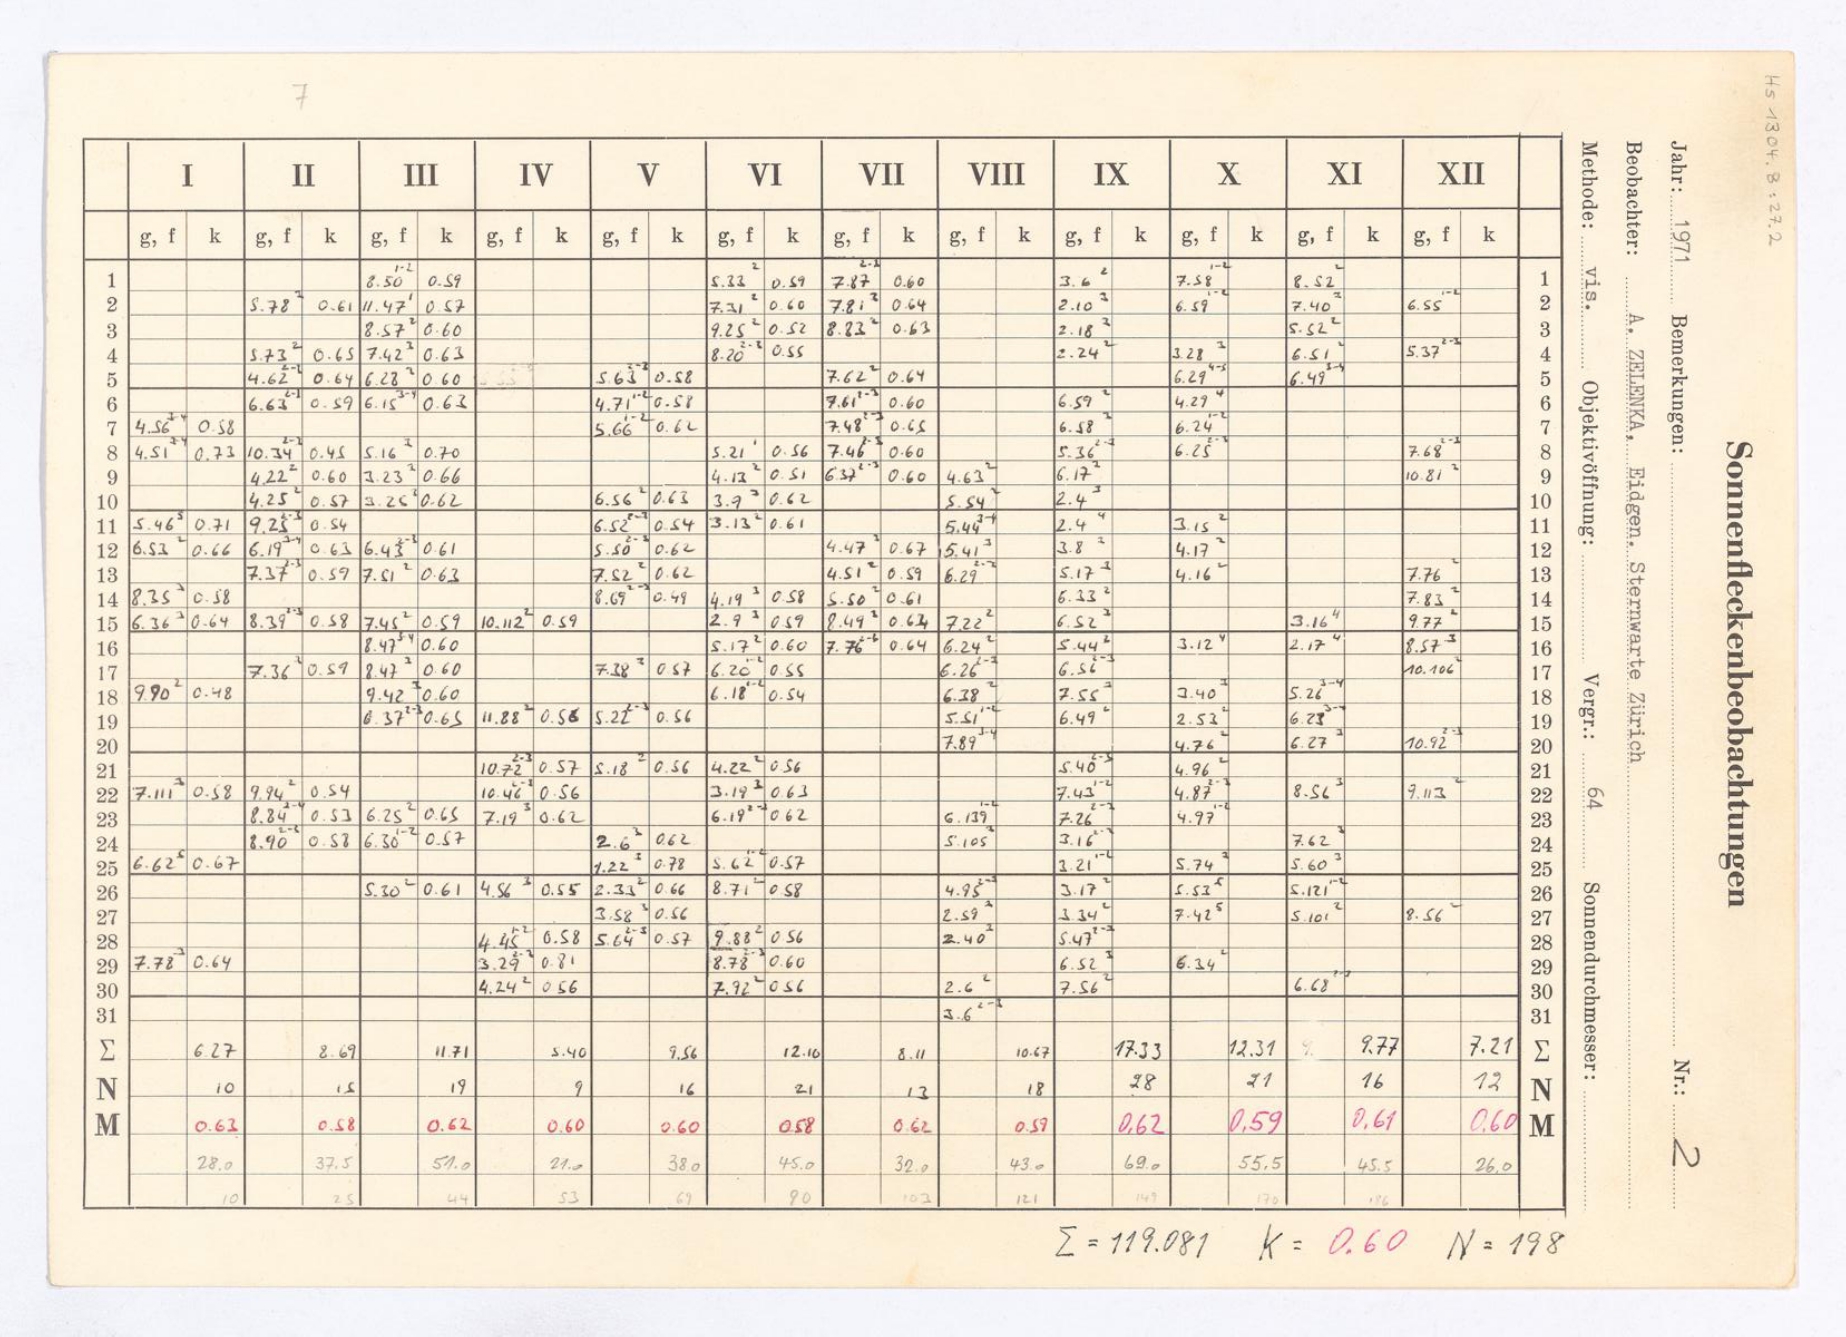 7
Hs 1304.8:272
Sonnenfleckenbeobachtungen
Jahr: 1971 Bemerkungen: Nr.: 2
Beobachter: A. ZELENKA, Eidgen. Sternwarte Zürich
Methode: vis. Objektivöffnung: Vergr.: 64 Sonnendurchmesser:
I II III IV V VI VII VIII IX X XI XII
g, f k g, f k g, f k g, f k g, f k g, f k g, f k g, f k g, f k g, f k g, f k g, f k
1 8.50 1-2 0.59 5.33 2 0.59 7.87 2-3 0.60 3.6 2 7.58 1-2 8.52 2 1
2 5.78 2 0.61 11.47 1 0.57 7.31 2 0.60 7.81 2 0.64 2.10 3 6.59 1-2 7.40 2 6.55 1-2 2
3 8.57 2 0.60 9.25 2 0.52 8.23 2 0.63 2.18 2 5.52 2 3
4 5.73 2 0.65 7.42 3 0.63 8.20 2-3 0.55 2.24 2 3.28 3 6.51 2 5.37 2-3 4
5 4.62 2-3 0.64 6.28 2 0.60 5.63 2-3 0.58 7.62 2 0.64 6.29 4-5 6.49 3-4 5
6 6.63 2-3 0.59 6.15 3-4 0.63 4.71 1-2 0.58 7.61 2-3 0.60 6.59 2 4.29 4 6
7 4.56 3-4 0.58 5.66 1-2 0.62 7.48 2-3 0.65 6.58 2 6.24 1-2 7
8 4.51 3-4 0.73 10.34 2-3 0.45 5.16 3 0.70 5.21 1 0.56 7.46 2-3 0.60 5.36 2-3 6.25 2-3 7.68 2-3 8
9 4.22 2 0.60 3.23 2 0.66 4.13 2 0.51 6.37 2-3 0.60 4.63 2 6.17 2 10.81 2 9
10 4.25 2 0.57 3.25 2 0.62 6.56 2 0.63 3.9 3 0.62 5.54 2 2.4 3 10
11 5.46 5 0.71 9.25 2-3 0.54 6.52 2-3 0.54 3.13 2 0.61 5.44 3-4 2.4 4 3.15 2 11
12 6.53 2 0.66 6.19 3-4 0.63 6.43 2-3 0.61 5.50 2-3 0.62 4.47 3 0.67 5.41 3 3.8 2 4.17 2 12
13 7.37 2-3 0.59 7.51 2 0.63 7.52 2 0.62 4.51 2 0.59 6.29 2-3 5.17 3 4.16 2 7.76 2 13
14 8.35 3 0.58 8.69 2-3 0.49 4.19 3 0.58 5.50 2 0.61 6.33 2 7.83 2 14
15 6.36 3 0.64 8.39 2-3 0.58 7.45 2 0.59 10.112 2 0.59 2.9 3 0.59 8.49 2 0.62 7.22 2 6.52 3 3.16 4 9.77 2 15
16 8.47 3-4 0.60 5.17 2 0.60 7.76 0.64 6.24 2 5.44 2 3.12 4 2.17 4 8.57 3 16
17 7.36 3 0.59 8.47 3 0.60 7.38 3 0.57 6.20 1-2 0.55 6.26 2-3 6.56 2-3 10.106 2 17
18 9.90 2 0.48 9.42 3 0.60 6.18 1-2 0.54 6.38 2 7.55 3 3.40 3 5.26 3-4 18
19 6.37 2-3 0.65 11.88 2 0.56 5.22 2-3 0.56 5.51 1-2 6.49 2 2.53 2 6.23 3-4 19
20 7.89 3-4 4.76 2 6.27 3 10.92 2-3 20
21 10.72 2-3 0.57 5.18 2 0.56 4.22 2 0.56 5.40 2-3 4.96 2 21
22 7.111 3 0.58 9.94 2 0.54 10.46 2-3 0.56 3.19 3 0.63 7.43 1-2 4.87 2-3 8.56 3 9.113 2 22
23 8.84 3-4 0.53 6.25 2 0.65 7.19 3 0.62 6.19 2-3 0.62 6.139 1-2 7.26 2-3 4.97 1-2 23
24 8.90 2-3 0.58 6.30 1-2 0.57 2.6 3 0.62 5.105 2 3.16 2-3 7.62 3 24
25 6.62 5 0.67 1.22 3 0.78 5.62 1-2 0.57 3.21 1-2 5.74 3 5.60 3 25
26 5.30 2 0.61 4.56 3 0.55 2.33 2 0.66 8.71 2 0.58 4.95 2-3 3.17 2 5.53 5 5.121 1-2 26
27 3.58 3 0.56 2.59 2 3.34 2 7.42 5 5.101 2 8.56 2 27
28 4.45 1-2 0.58 5.64 2-3 0.57 9.88 2 0.56 2.40 2 5.47 2-3 28
29 7.78 3 0.64 3.29 2-3 0.81 8.78 2-3 0.60 6.52 3 6.34 2 29
30 4.24 2 0.56 7.92 2 0.56 2.6 2 7.56 2 6.68 2-3 30
31 3.6 2-3 31
Σ 6.27 8.69 11.71 5.40 9.56 12.10 8.11 10.67 17.33 12.31 9.77 7.21 Σ
N 10 15 19 9 16 21 13 18 28 21 16 12 N
M 0.63 0.58 0.62 0.60 0.60 0.58 0.62 0.59 0,62 0,59 0,61 0,60 M
28.0 37.5 51.0 21.0 38.0 45.0 32.0 43.0 69.0 55.5 45.5 26.0
10 25 44 53 69 90 103 121 149 170 186
Σ = 119.081 K = 0.60 N = 198